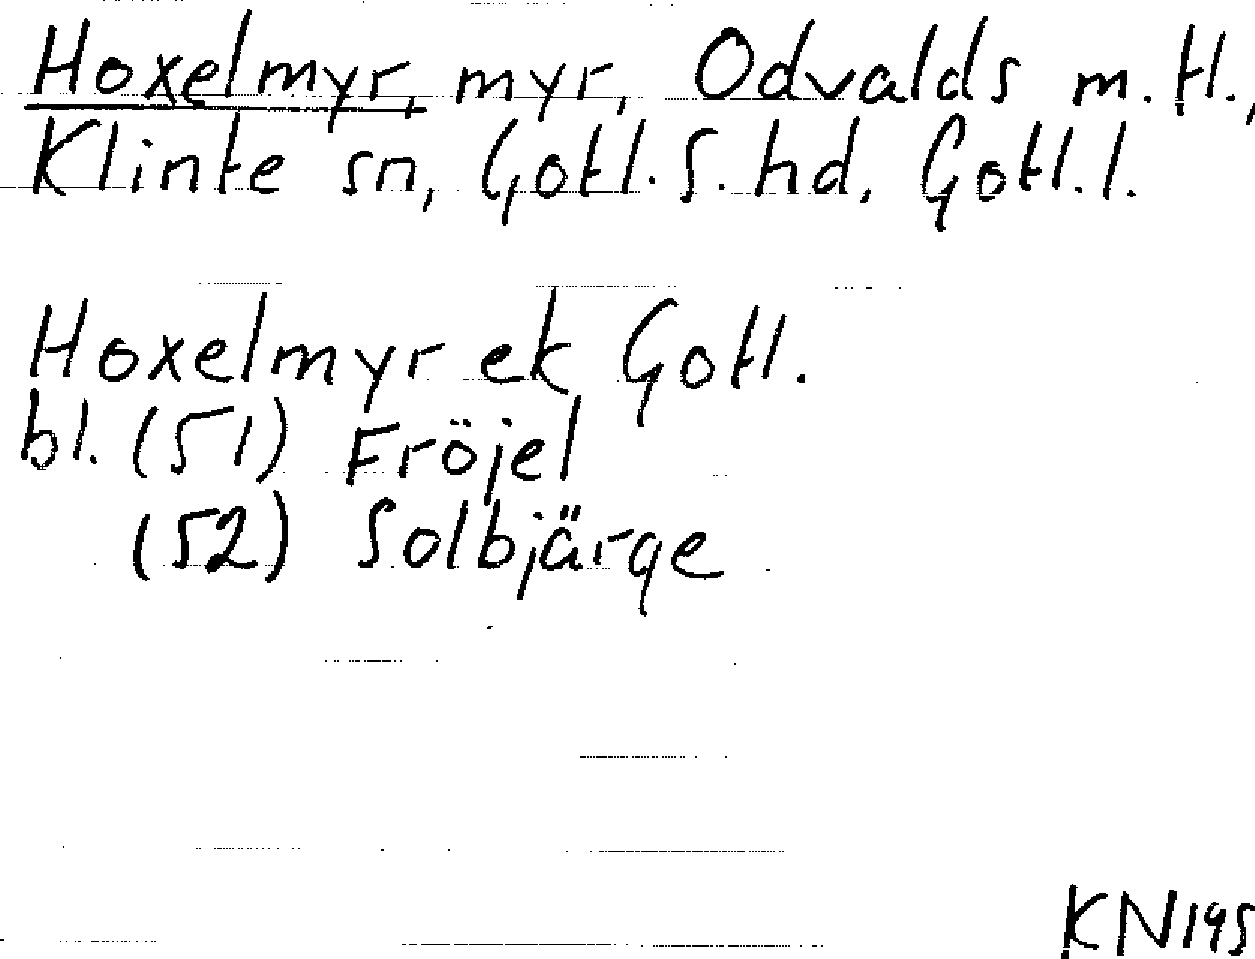 Hoxelmyr, myr, Odvalds m. fl.,
Klinte sn, Gotl. S. hd, Gotl. l.
Hoxelmyr ek Gotl.
bl. (51) Fröjel
(52) Solbjärge
KN 195